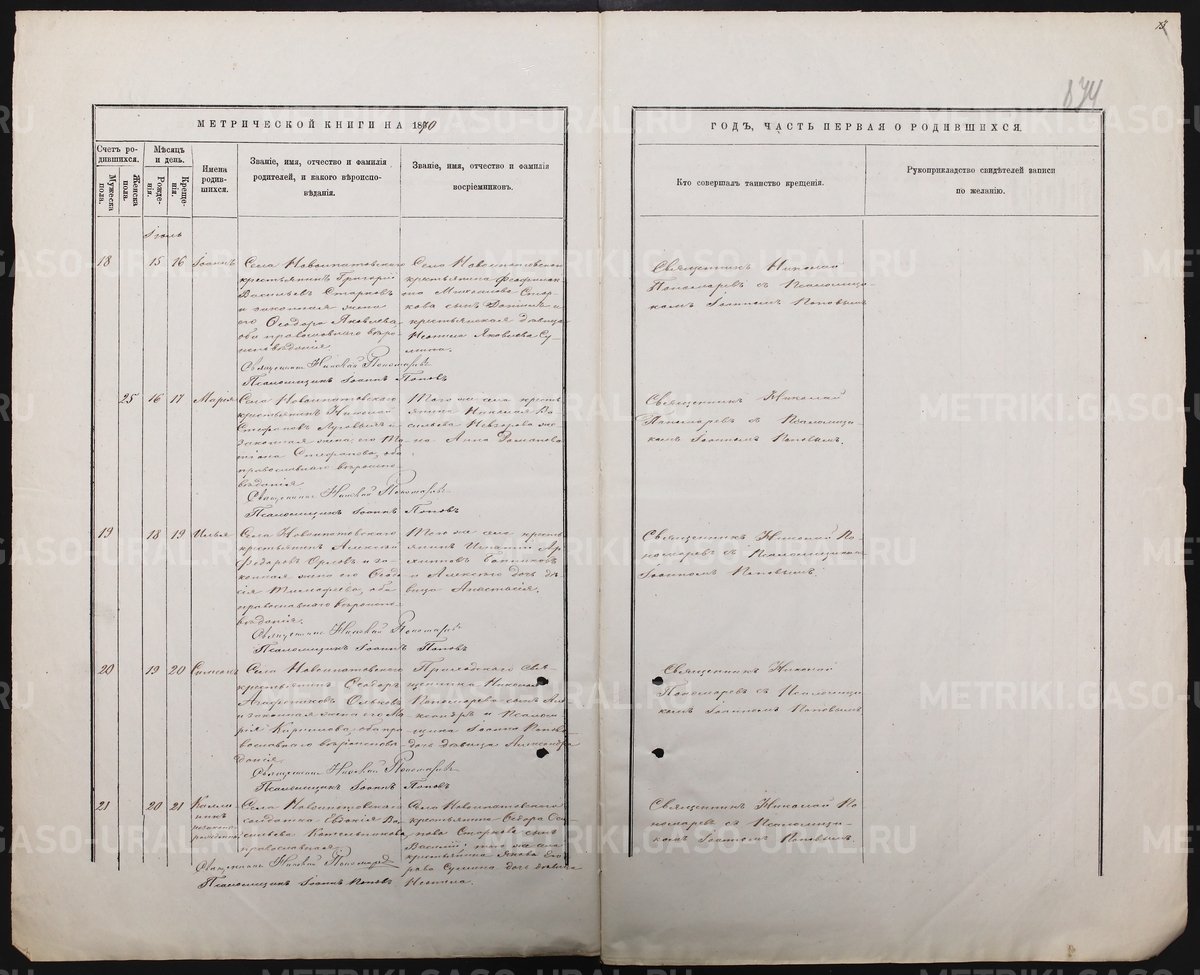 874
МЕТРИЧЕСКОЙ КНИГИ НА 1870
ГОДЪ, ЧАСТЬ ПЕРВАЯ О РОДИВШИХСЯ.
Счетъ родившихся.
Мужеска пола.
Женска пола.
Мѣсяцъ и день.
Рожденія.
Крещенія.
Имена родившихся.
Званіе, имя, отчество и фамилія
родителей, и какого вѣроиспо-
вѣданія.
Званіе, имя, отчество и фамилія
воспріемниковъ.
Кто совершалъ таинство крещенія.
Рукоприкладство свидѣтелей записи
по желанію.
Іюль
18 15 16 Іоаннъ
Села Новоипатовскаго
крестьянинъ Григорій
Васильевъ Старковъ
и законная жена
его Ѳеодора Яковлева,
оба православнаго вѣро-
исповѣданія.
Священникъ Николай Пономаревъ
Псаломщикъ Іоаннъ Поповъ
Села Новоипатовскаго
крестьянина
Михайлова Стар-
кова сынъ и
крестьянская дѣвица
Яковлева Су-
мина.
Священникъ Николай
Пономаревъ съ Псаломщи-
комъ Іоанномъ Поповымъ
25 16 17 Марія
Села Новоипатовскаго
крестьянинъ Николай
Стефановъ и
законная жена его Та-
тіана Стефанова, оба
православнаго вѣроиспо-
вѣданія
Священникъ Николай Пономаревъ
Псаломщикъ Іоаннъ Поповъ
Того же села кресть-
янина Николая Ва-
сильева же-
на Анна Романова
Священникъ Николай
Пономаревъ съ Псаломщи-
комъ Іоанномъ Поповымъ.
19 18 19 Илья
Села Новоипатовскаго
крестьянинъ Алексѣй
Ѳедоровъ Орловъ и за-
конная жена его Ѳеодо-
сія Тимофеева, оба
православнаго вѣроиспо-
вѣданія.
Священникъ Николай Пономаревъ
Псаломщикъ Іоаннъ Поповъ
Того же села кресть-
янинъ
и Алексѣя дочь дѣ-
вица Анастасія.
Священникъ Николай По-
номаревъ съ Псаломщикомъ
Іоанномъ Поповымъ.
20 19 20 Симеонъ
Села Новоипатовскаго
крестьянинъ Ѳеодоръ
и законная жена его Ма-
рія Кирилова, оба пра-
вославнаго вѣроиспове-
данія
Священникъ Николай Пономаревъ
Псаломщикъ Іоаннъ Поповъ
Приходскаго свя-
щенника Николая
Пономарева сынъ Але-
ксандръ и Псалом-
щика Іоанна Попова
дочь дѣвица Александра
Священникъ Николай
Пономаревъ съ Псаломщи-
комъ Іоанномъ Поповымъ
21 20 21
Села Новоипатовскаго
солдатка Евдокія Ва-
сильева
православная.
Священникъ Николай Пономаревъ
Псаломщикъ Іоаннъ Поповъ
Села Новоипатовскаго
крестьянина Ѳедора
Старкова сынъ
Василій; того же села
крестьянина Якова Его-
рова Сумина дочь дѣвица
Священникъ Николай По-
номаревъ съ Псаломщи-
комъ Іоанномъ Поповымъ.
METRIKI.GASO-URAL.RU